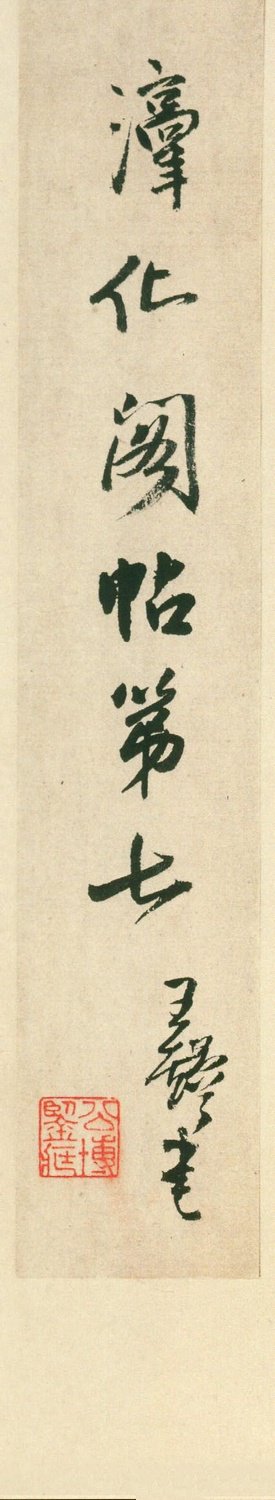 淳化閣帖第七
王鐸書
公博鑒定